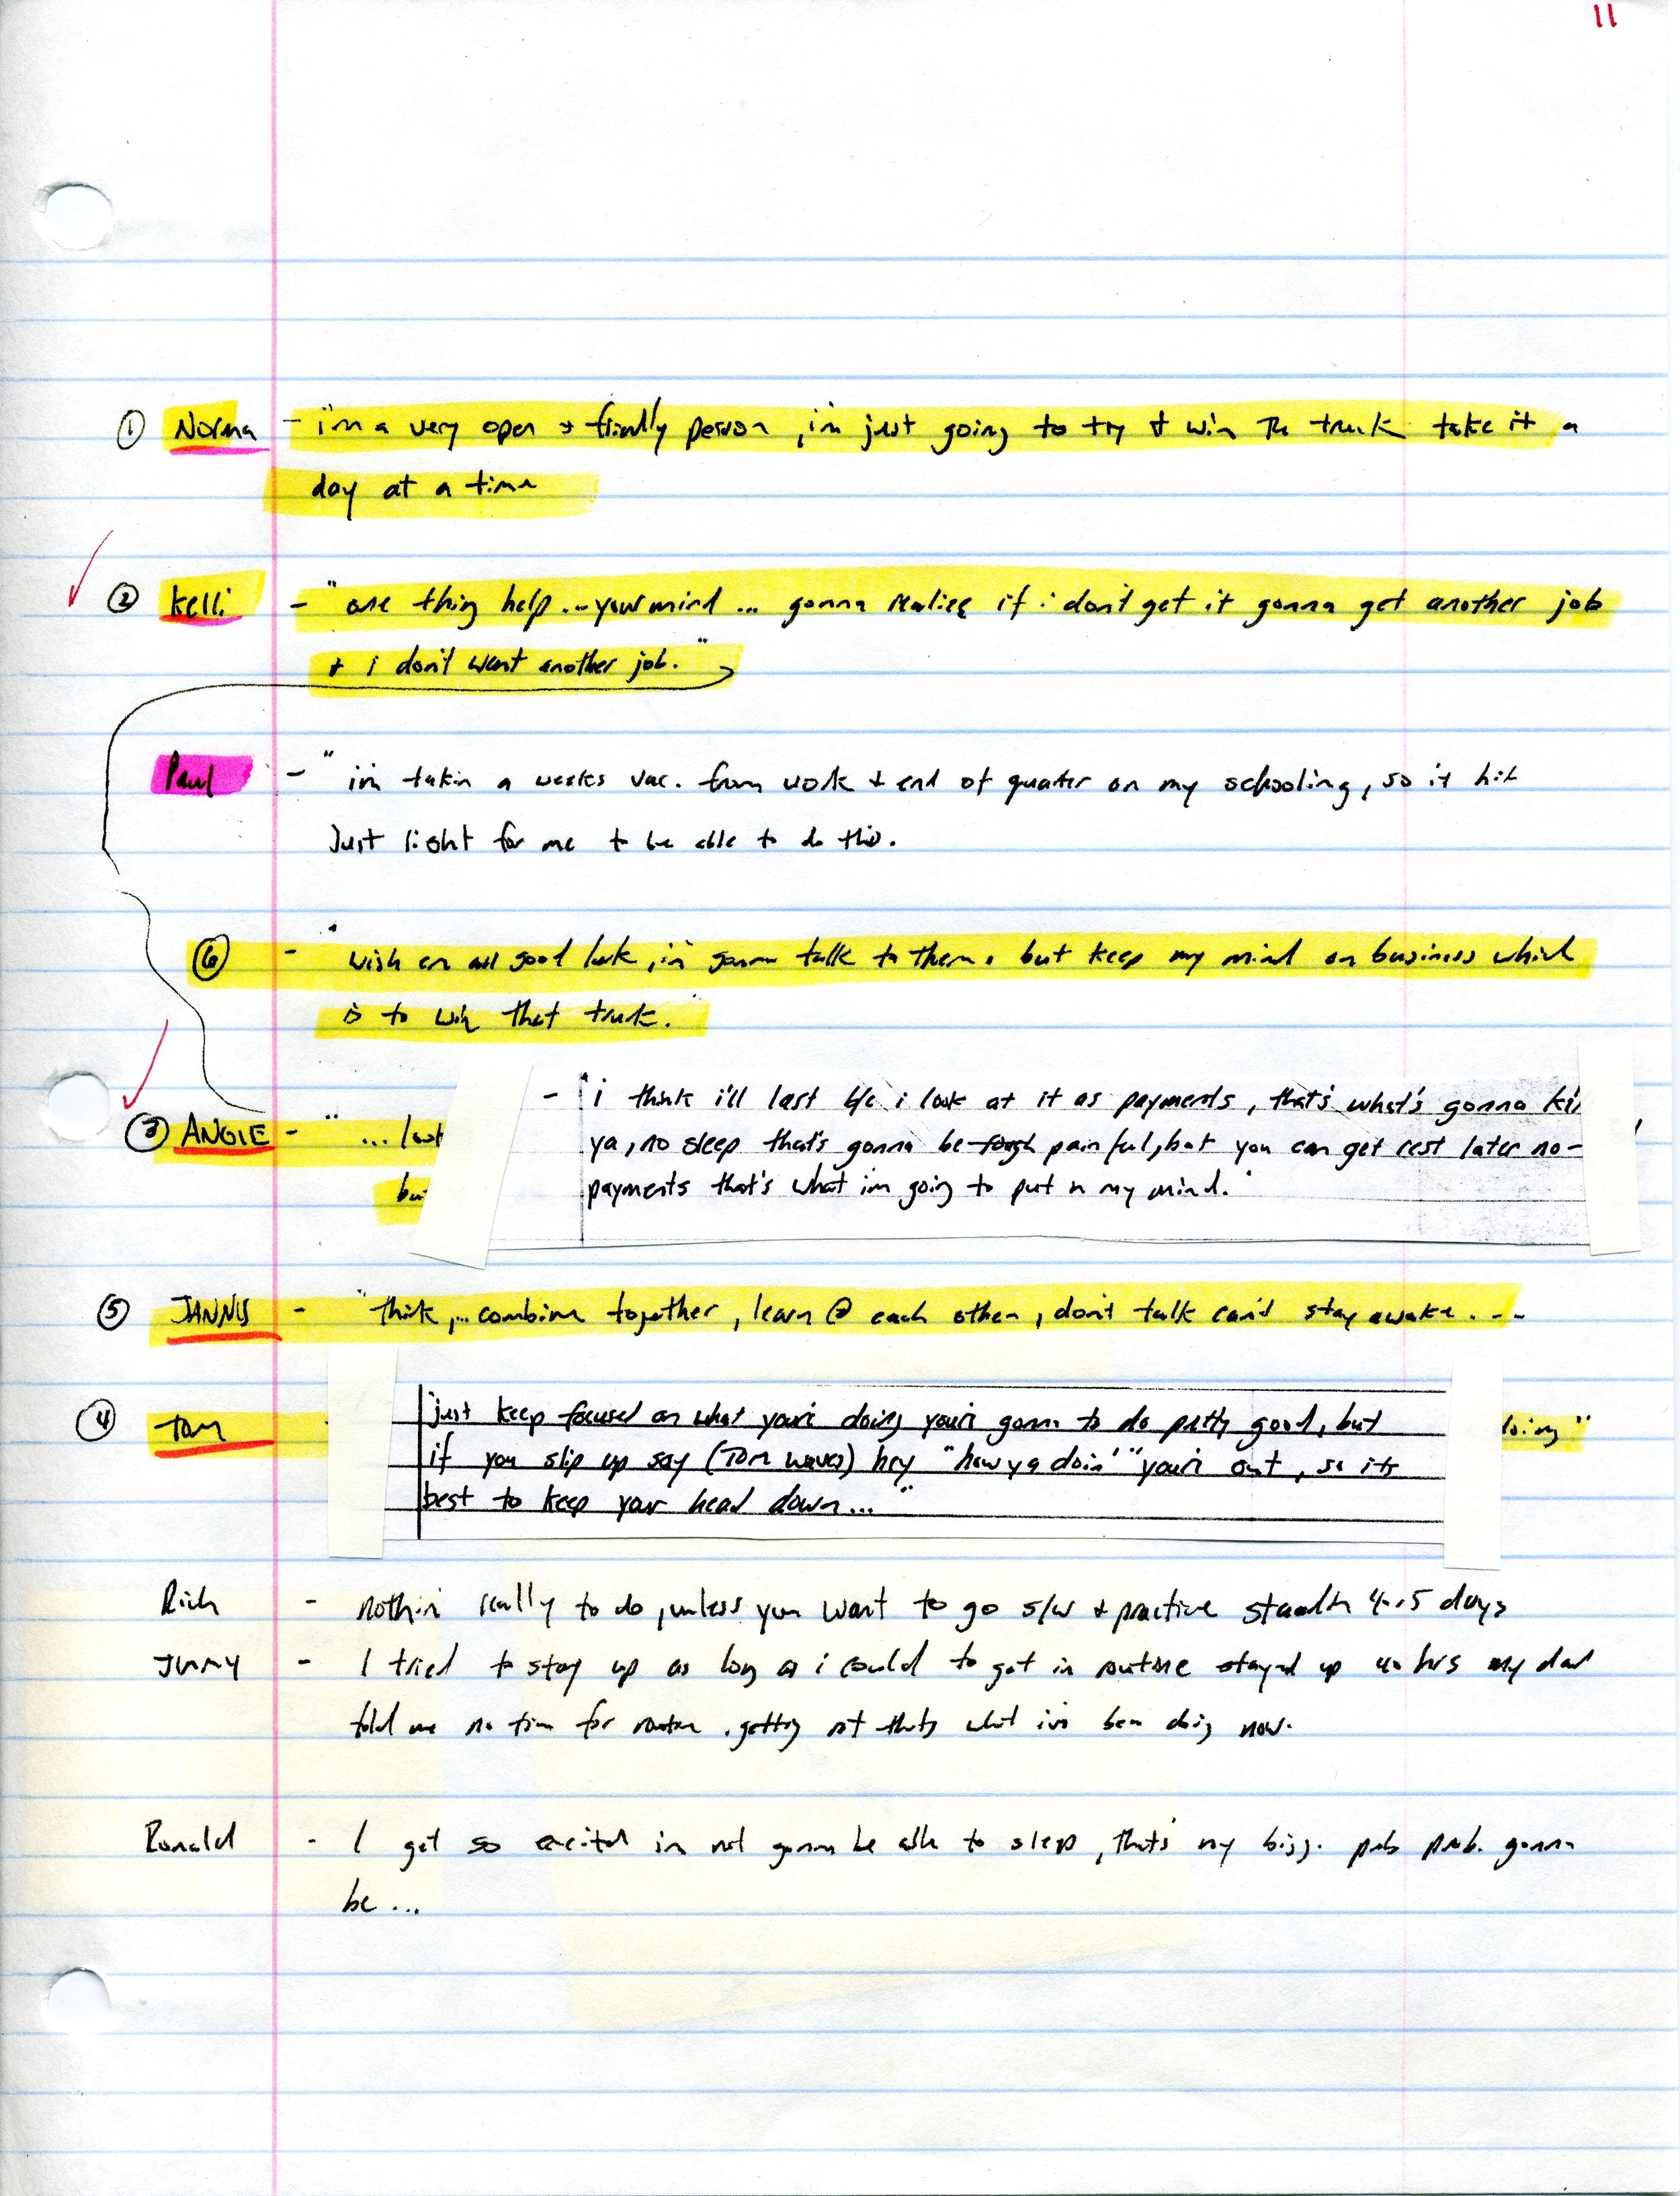 11
① Norma - "i'm a very open & friendly person, i'm just going to try & win the truck take it a
day at a time
② Kelli - "one thing help ... your mind ... gonna realize if i don't get it gonna get another job
& i don't want another job."
Paul - "i'm takin a weeks vac. from work & end of quarter on my schooling, so it hit
Just right for me to be able to do this.
⑥ - "wish em all good luck, i'm gonna talk to them, but keep my mind on business which
is to win that truck."
- "i think i'll last b/c i look at it as payments, that's what's gonna kil
③ ANGIE - "... look
ya, no sleep that's gonna be tough painful, but you can get rest later no-
bu
payments that's what im going to put n my mind."
⑤ JANNIS - "think, ... combine together, learn @ each other, don't talk can't stay awake ...
④ Tom
just keep focused on what you're doing you're gonna to do pretty good, but
doing"
if you slip up say (Tom waves) hey "how ya doin'" you're out, so its
best to keep your head down..."
Rich - nothin' really to do, unless you want to go s/w & practice standin 4-5 days
JIMMY - I tried to stay up as long as i could to get in routine stayed up 40 hrs my dad
told me no time for routine, getting rst thats what i'm been doing now.
Ronald - I get so excited im not gonna be able to sleep, that's my bigg. prob prob. gonna
be ...